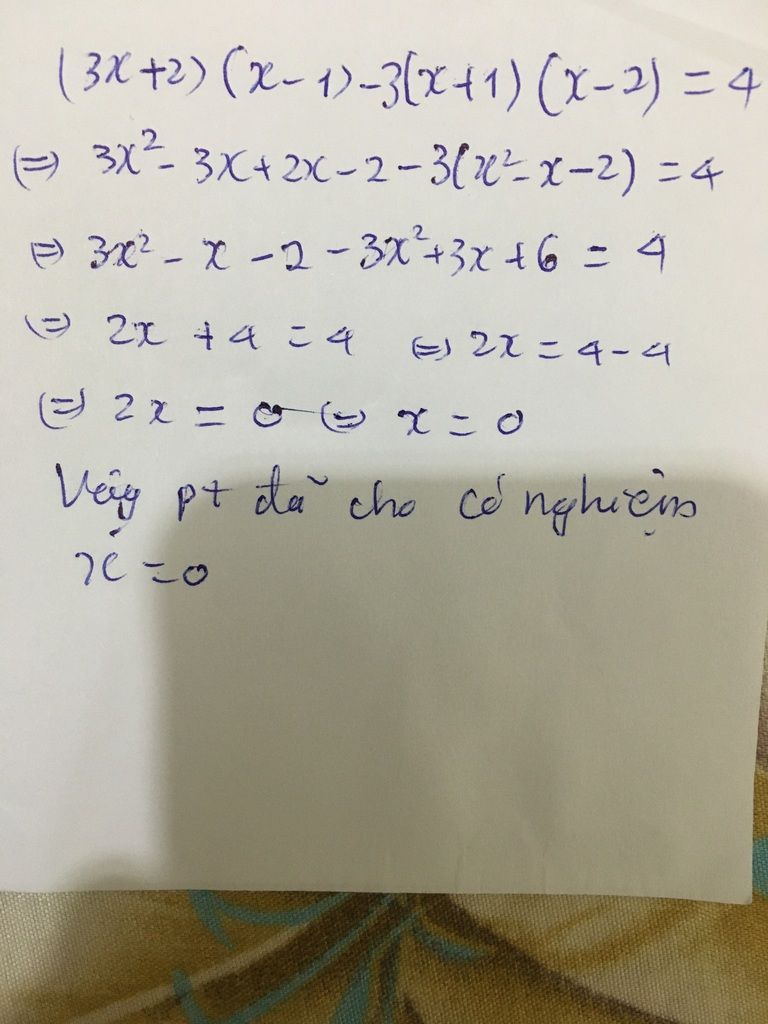 (3x+2)(x-1)-3(x+1)(x-2)=4
(=) 3x²-3x+2x-2-3(x²-x-2)=4
(=) 3x²-x-2-3x²+3x+6=4
(=) 2x+4=4 (=) 2x=4-4
(=) 2x=0 (=) x=0
Vậy pt đã cho có nghiệm
x=0